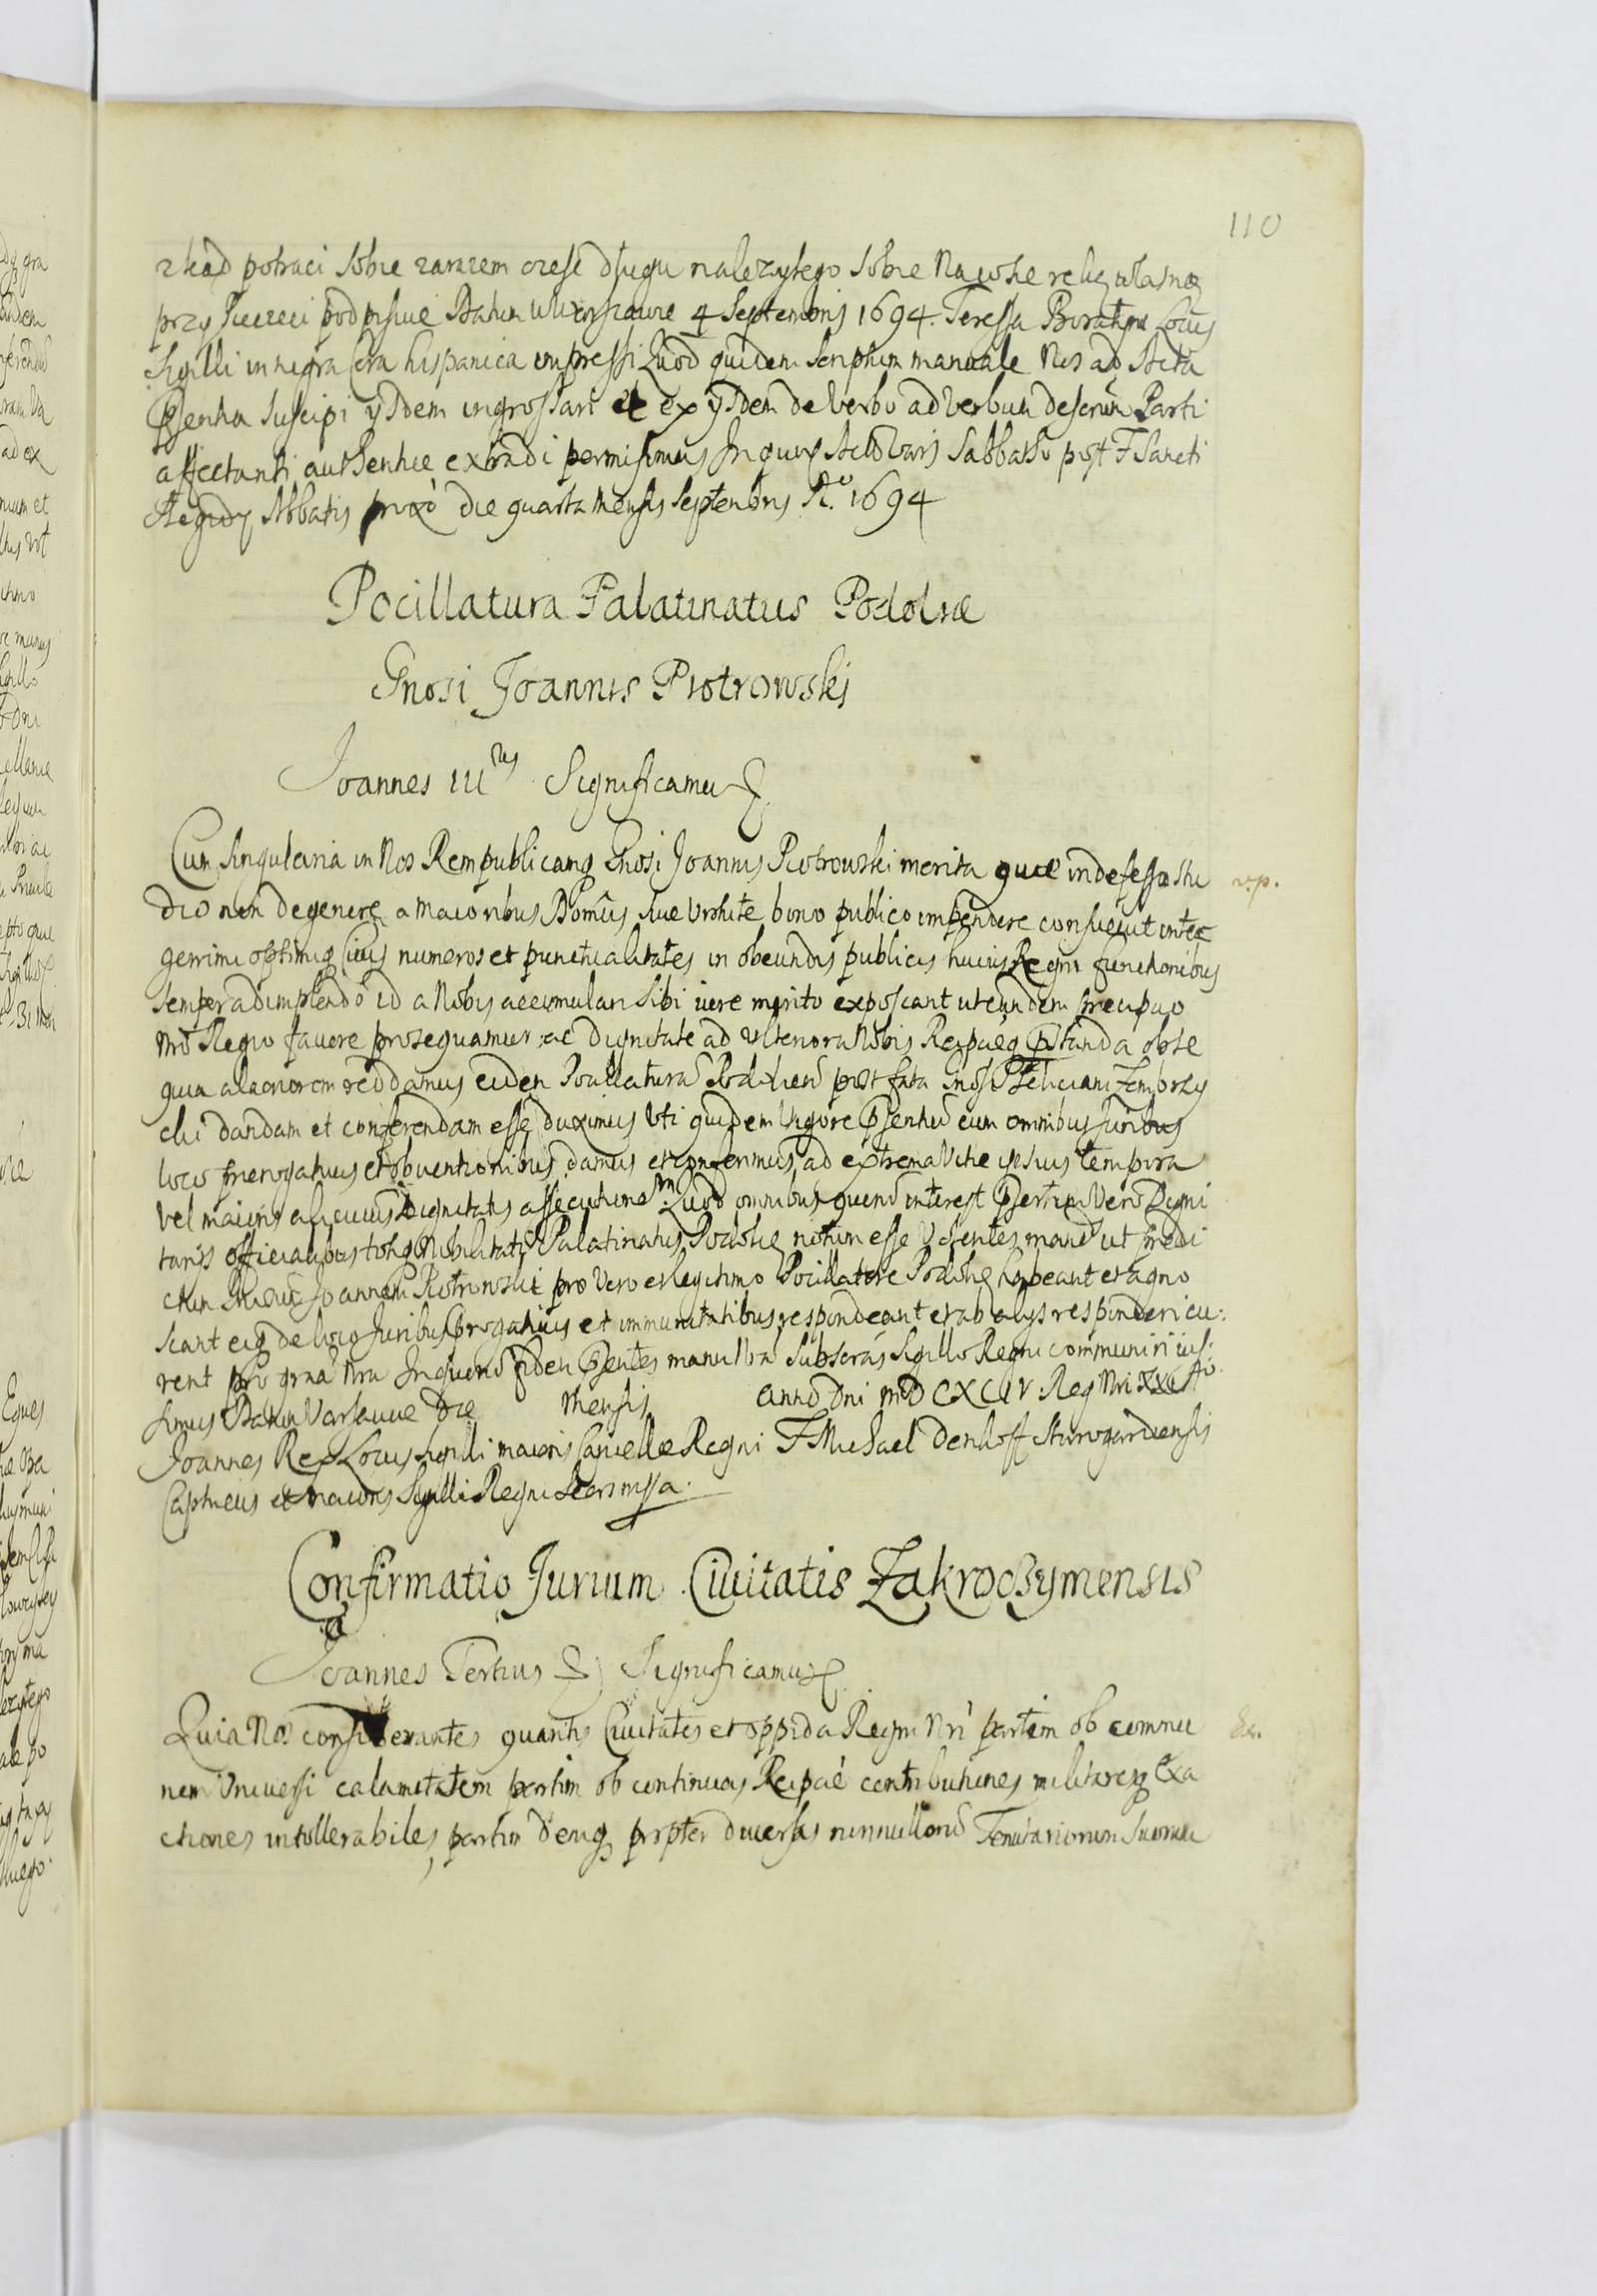 110
zkąd potraci sobie zarazem część długu należytego sobie Na co się ręką własną
przy Pieczęci podpisuie Datum w Warszawie 4 Septembris 1694. Teressa Locus
Sigilli in nigra Cera hispanica impressi Quod quidem scriptum manuale Nos ad Acta
pñtia suscipi ijsdem ingrossari et ex ijsdem de verbo ad verbum descriptum Parti
affectanti authentice extradi permisimus In quorum Act Vars Sabbatho post F Sancti
Aegidy Abbatis proxo die quarta mensis septembris Ao. 1694
Pocillatura Palatinatus Podoliæ
Gnosi Joannis Piotrowskj
Joannes IIItius Significamus
Cum singularia in Nos Rempublicamq Gnosi Joannis Piotrowski merita quæ indefesso stu
v.p.
dio non degenere a maioribus Domus suæ virtute bono publico impendere consuevit inte
gerrimi optimiq Civis numeros et punctualitates in obeundis publicis huius Regni functionibus
semper adimplendo id a Nobis accumulari sibi iure merito exposcant ut eundem precipuo
nro Regio favore prosequamur, ac dignitate ad ulteriora Nobis Reipaeq pstanda obse
quia alacriorem reddamus eidem Pocillaturã Podoliensẽ post fata Gnosi Feliciani Zembrzy
cki dandam et conferendam esse duximus Uti quidem vigore pñtiũ cum omnibus Juribus
loco prerogatiuis et obuentionibus damus et conferimus, ad extrema vitæ ipsius tempora
vel maioris alicuius Dignitatis assecutionem Quod omnibus quorũ interest psertim vero Digni
tarijs officialibus totiq Nobilitati Palatinatus Podoliæ notum esse Volentes, mand ut predi
ctum Joannem Piotrowski pro vero et legitimo Pocillatore Podoliæ habeant et agno
scant eiq de loco Juribus prrogatiuis et immunitatibus respondeant et ab alys responderi cu-
rent pro graa nra In quorũ fidem pñtes manu nra subscras Sigillo Regni communiri ius-
simus Datum Varsauiæ Die mensis Anno Dni MDCXCIV Reg Nri XXI Ao.
Joannes Rex Locus sigilli maioris Cancellæ Regni F Michael Denhoff Starogardiensis
Captneus et maioris Sigilli Regni Secrs mssa.
Confirmatio Jurium Ciuitatis Zakroczymensis
Joannes Tertius Significamus
Quia Nos considerantes quantis Ciuitates et oppida Regni Nri partim ob commu
Ex.
nem Universi calamitatem partim ob continuas Reipae contributiones militaresq Exa
ctiones intollerabiles, partim deniq propter diuersas nonnullorũ Tenutariorum suorum